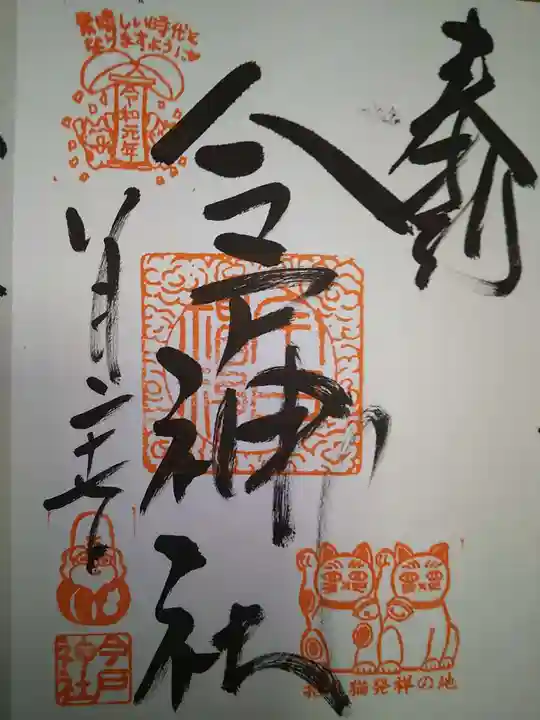 奉
今戸神社
八月二十七
素晴しい時代と
なりますよう!
令和元年
今戸
神社
招き猫発祥の地